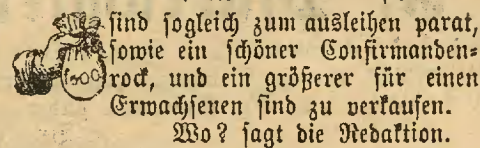 1500
sind sogleich zum ausleihen parat,
sowie ein schöner Confirmanden=
rock, und ein größerer für einen
Erwachsenen sind zu verkaufen.
Wo? sagt die Redaktion.